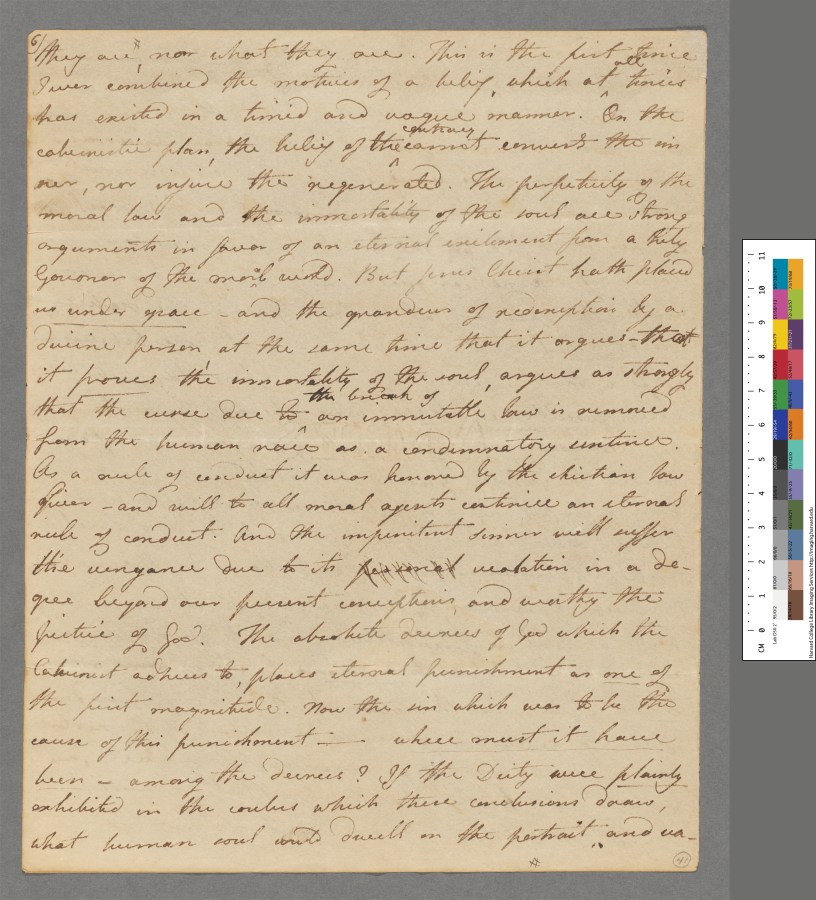 6/
they are, nor what they are. This is the first time
all
I ever combined the motives of a belief, which at times
has existed in a timid and vague manner. On the
contrary
calvinistic plan, the belief of the cannot convert the sin
ner, nor injure the regenerated. The perpetuity of the
moral law and the immortality of the soul are strong
arguments in favor of an eternal exilement from a holy
Govenor of the moral world. But Jesus Christ hath placed
us under grace - and the grandeur of redemption by a
divine person at the same time that it argues - that
it proves the immortality of the soul, argues as strongly
the breach of
that the curse due to an immutable law is removed
from the human race as a condemnatory sentence.
As a rule of conduct it was honored by the christian law
giver - and will to all moral agents continue an eternal
rule of conduct. And the impenitent sinner will suffer
the vengance due to its violation in a de-
gree beyond our present conceptions, and worthy the
justice of God. The absolute decrees of God which the
Calvinist adheres to, places eternal punishment as one of
the first magnitude. Now the sin which was to be the
cause of this punishment — where must it have
been - among the decrees? If the Deity were plainly
exhibited in the colours which these conclusions draw,
what human soul could dwell on the portrait, and va-
41
CM 0 1 2 3 4 5 6 7 8 9 10 11
Harvard College Library Imaging Services http://imaging.harvard.edu